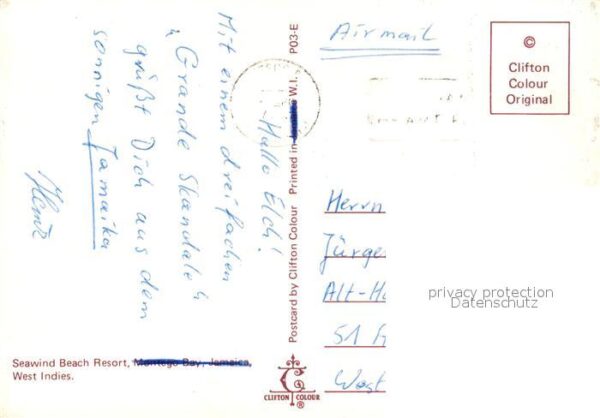 Airmail
©
Clifton
Colour
Original
Hallo Elch!
Mit einem dreifachen
"Grande Skandale"
grüßt Dich aus dem
sonnigen Jamaika
Postcard by Clifton Colour Printed in W.I. P03-E
Herrn
Jürge
Alt-Ha
51
West
privacy protection
Datenschutz
Seawind Beach Resort, Montego Bay, Jamaica,
West Indies.
CLIFTON COLOUR
®